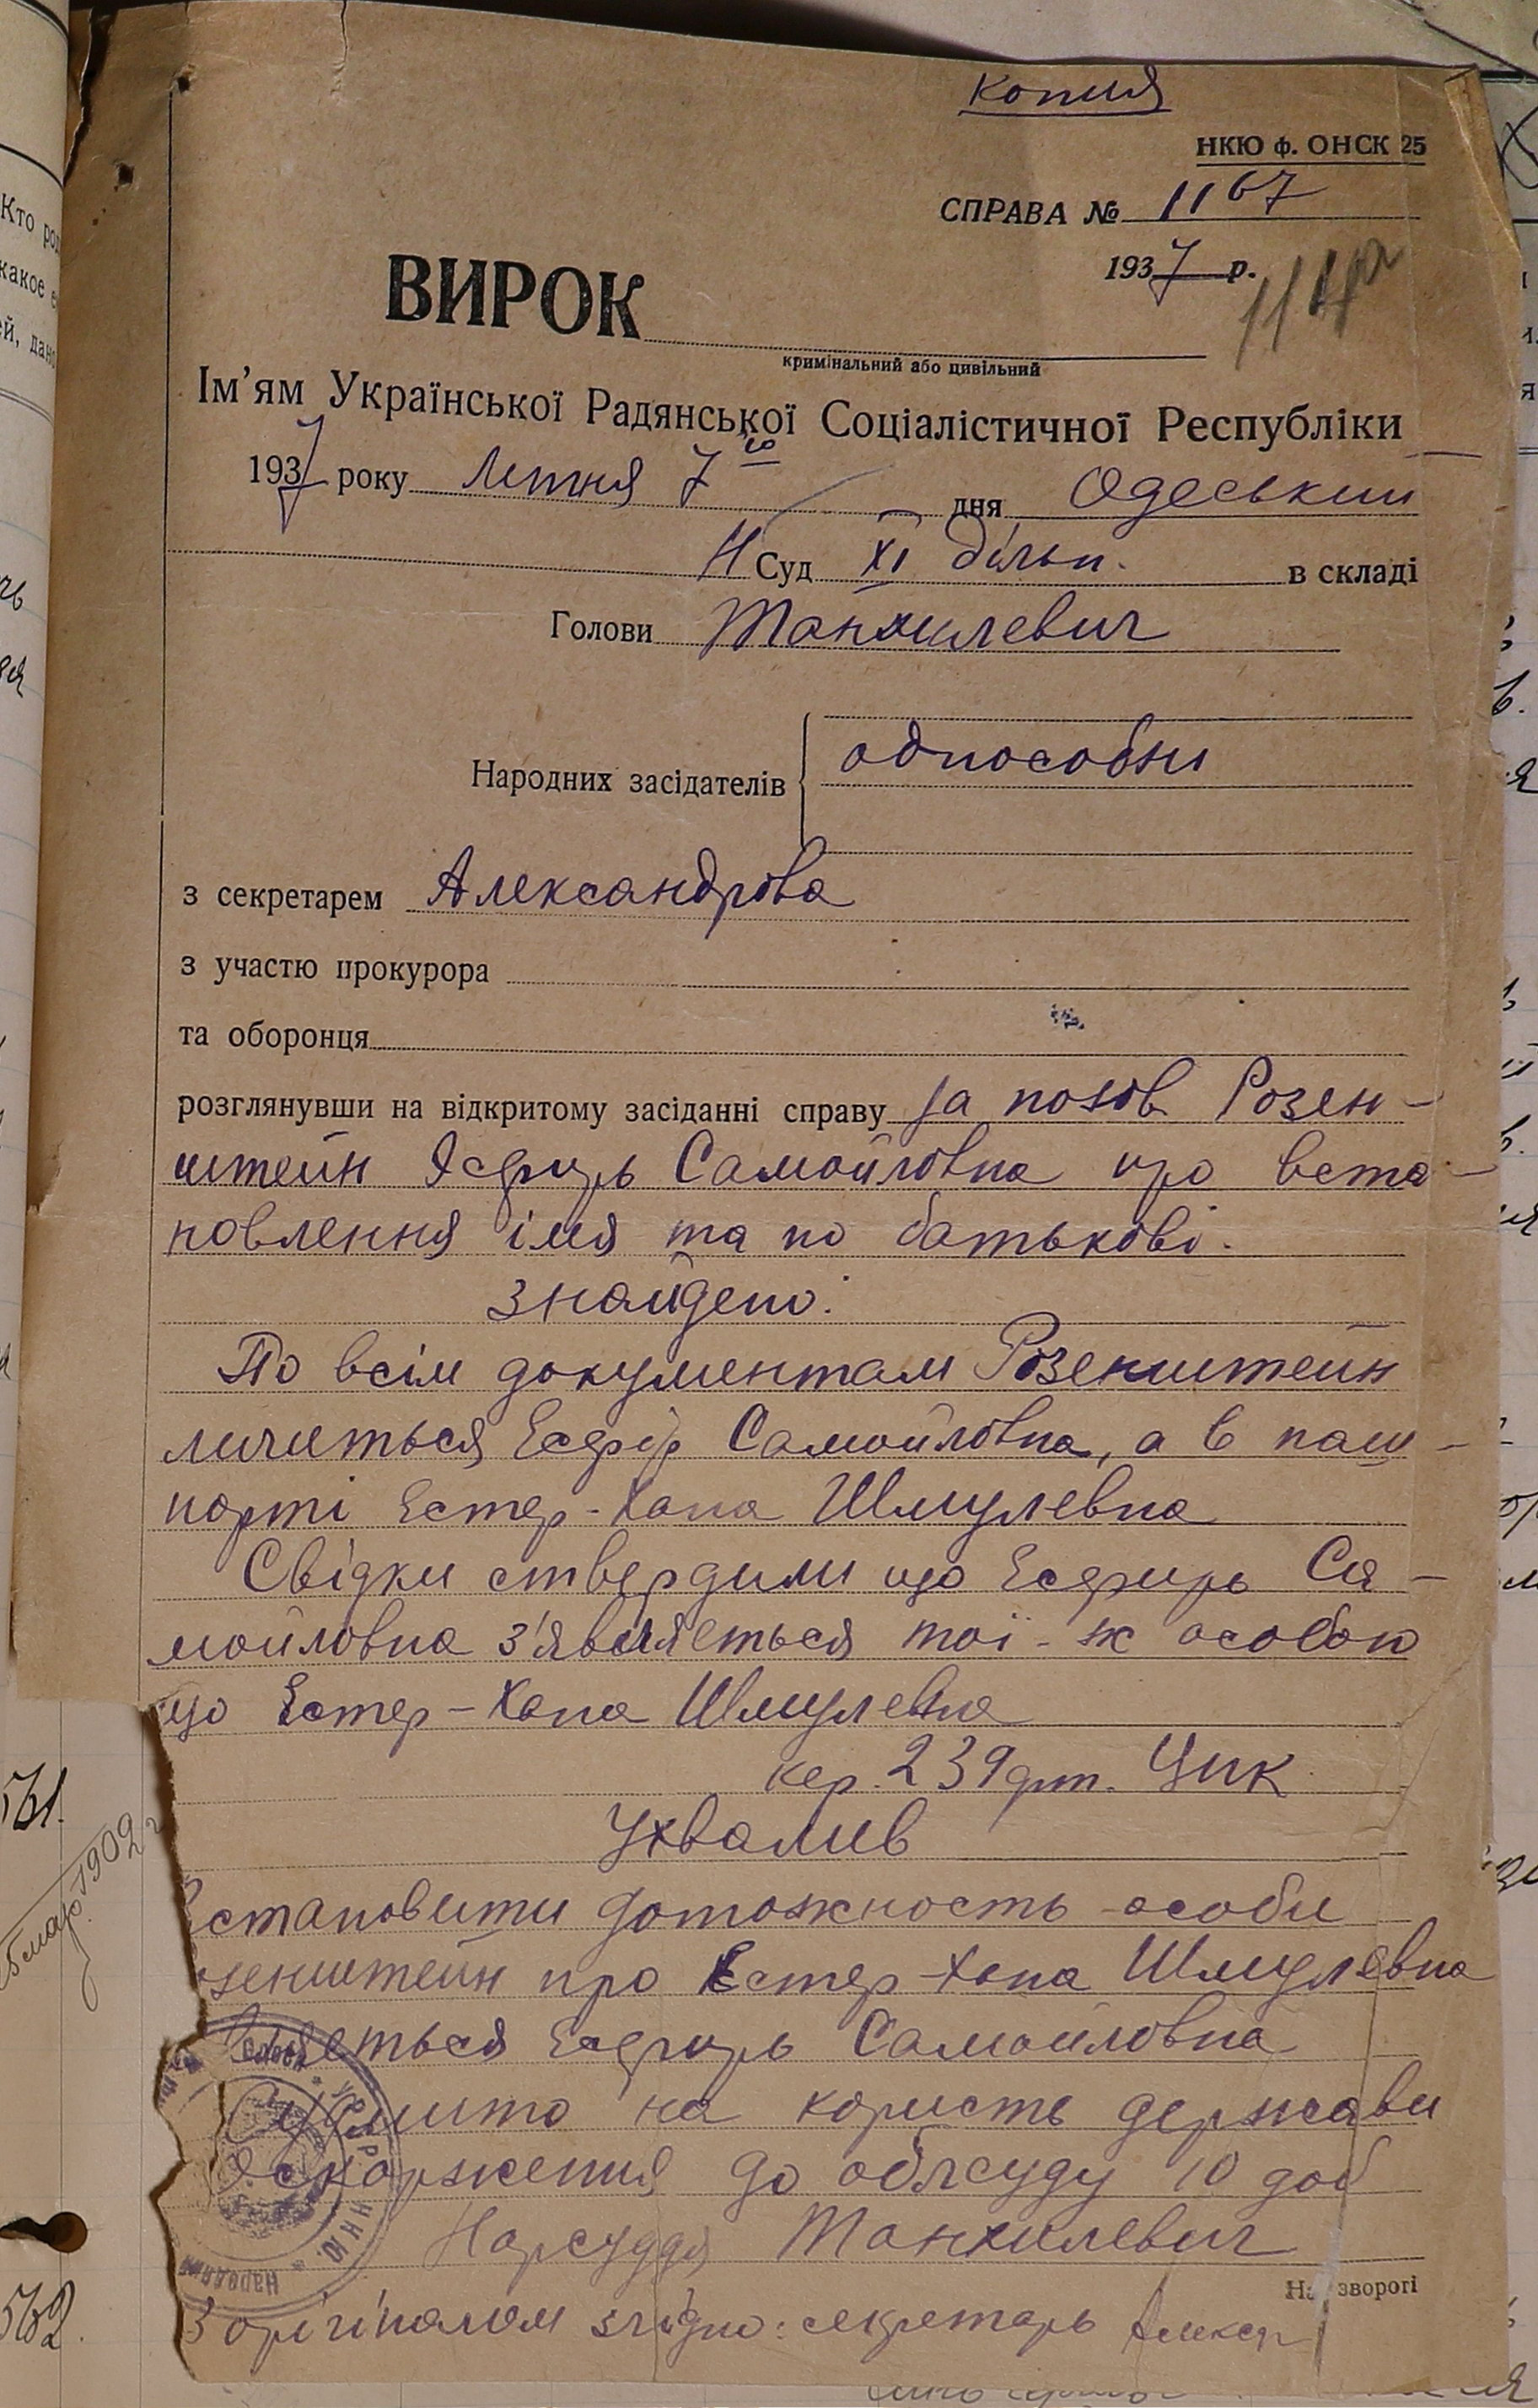 Копия
НКЮ ф. ОНСК 25
СПРАВА № 1167
1937 р.
114
ВИРОК
кримінальний або цивільний
Ім’ям Української Радянської Соціалістичної Республіки
1937 року Летня 7го дня Одеський
Н Суд XI дільн. в складі
Голови Танхилевич
Народних засідателів
одноособни
з секретарем Александрова
з участю прокурора
та оборонця
розглянувши на відкритому засіданні справу за позов Розен-
штейн Эсфирь Самойловна про вста-
новлення імя та по батькові.
знайдено:
По всім документам Розенштейн
личиться Есфір Самойловна, а в паш-
порті Естер-Хана Шмулевна
Свідки ствердили що Есфирь Са-
мойловна з'являеться тої-ж особою
що Естер-Хана Шмулевна
кер. 239 арт. ЦПК
Ухвалив
Встановити дотожность особи
зенштейн про Естер-Хана Шмулевна
яеться Есфирь Самойловна
Судмито на користь держави
Оскарження до облсуду 10 доб
Нарсуддя Танхилевич
На звороті
З орігіналом згідно: секретарь Алексар
Кто род
какое
ей, дано
561.
1902 г
562.